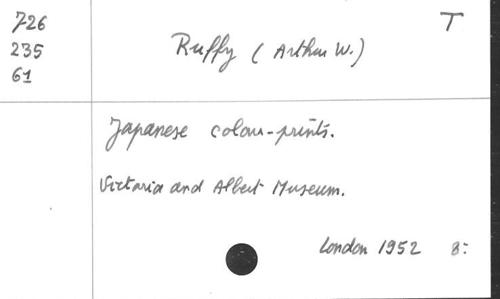 726
235
61
T
Ruffy (Arthur W.)
Japanese colour-prints.
Victoria and Albert Museum.
London 1952 8: